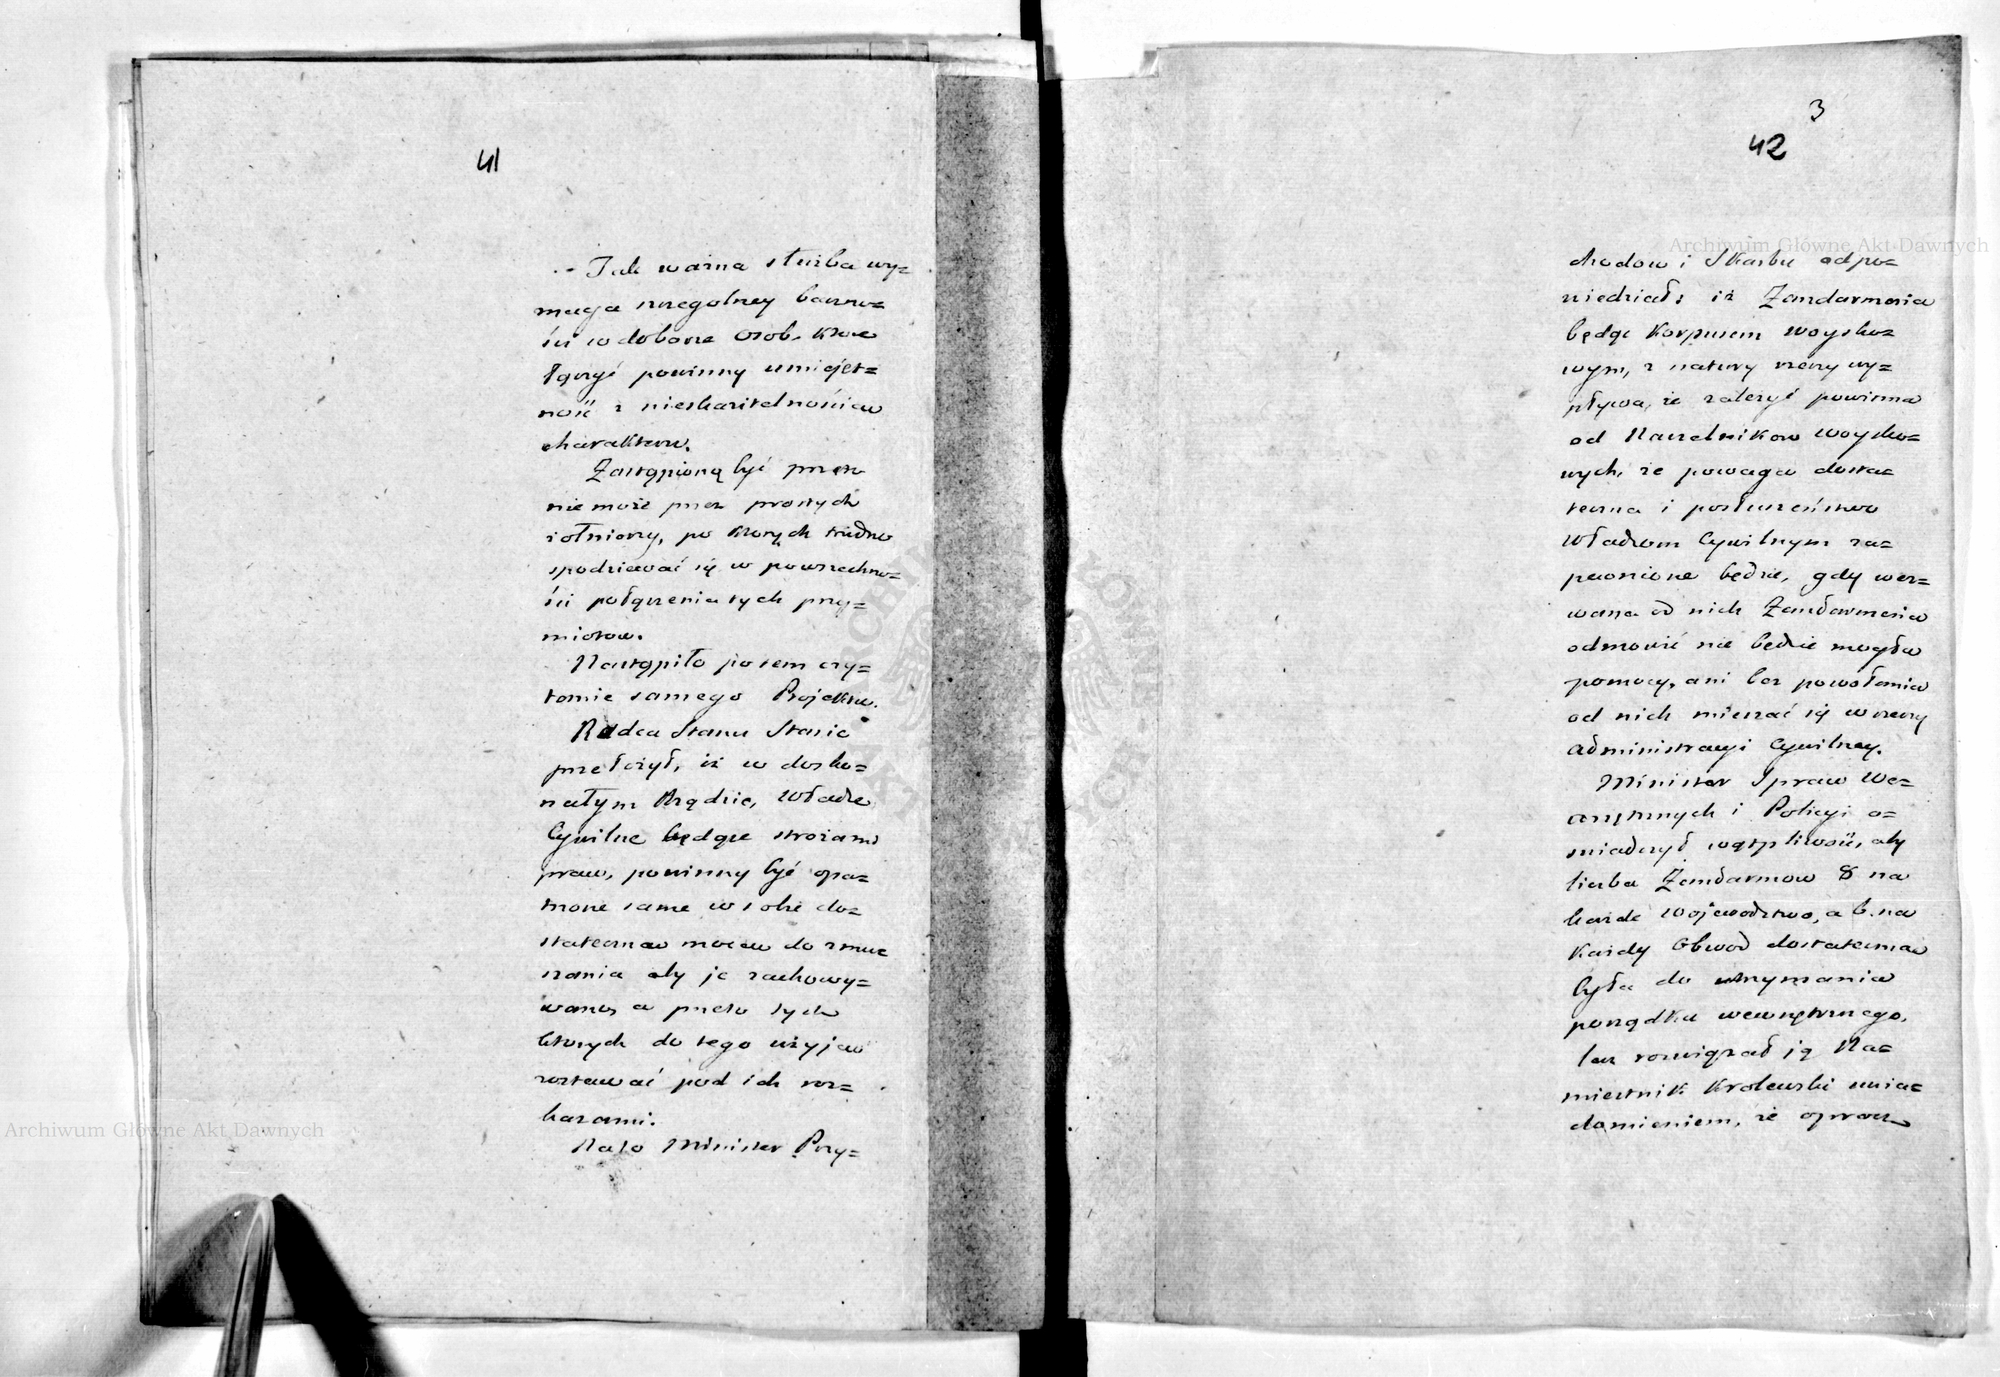 41
Tak ważna służba wy=
maga szczegolney baczno=
ści w doborze osob, ktore
łączyć powinny umiejęt=
ność z nieskazitelnościaw
charakteru.
Zastąpioną być przeto
nie może przez prostych
żołnierzy, po ktorych trudno
spodziewać się w powszechno=
ści połączenia tych przy=
miotow.
Nastąpiło potem czy=
tanie samego Projektu.
Radca Stanu Stasic
przełożył, iż w dosko=
nałym Rządzie, Władze
Cywilne będące strożami
praw, powinny być opa=
trzone same w sobie do=
stateczna mocaw do zmu=
szania aby je zachowy=
wano, a przeto tych
ktorych do tego użyjaw
zostawać pod ich roz=
kazami.
Na to Minister Przy=
3
42
chodow i Skarbu odpo=
wiedział: iż Żandarmeria
będąc Korpusem Woysko=
wym, z natury rzeczy wy=
pływa, że zależyć powinna
od Naczelnikow Woysko=
wych, że powaga dosta=
teczna i posłuszeństwo
Władzom Cywilnym za=
pewnione będzie, gdy wez=
wana od nich Żandarmeria
odmowić nie będzie mogła
pomocy, ani bez powołania
od nich mieszać się w rzeczy
administracyi Cywilney.
Minister Spraw We=
wnętrznych i Policyi o=
świadczył wątpliwość, aby
liczba Żandarmow 8 na
każde Wojewodztwo, a 6. na
Każdy Obwod dostateczna
była do utrzymania
porządku wewnętrznego,
lecz rozwiązał ją Na=
miestnik Krolewski uwia=
domieniem, że oprocz
Archiwum Główne Akt Dawnych
Archiwum Główne Akt Dawnych